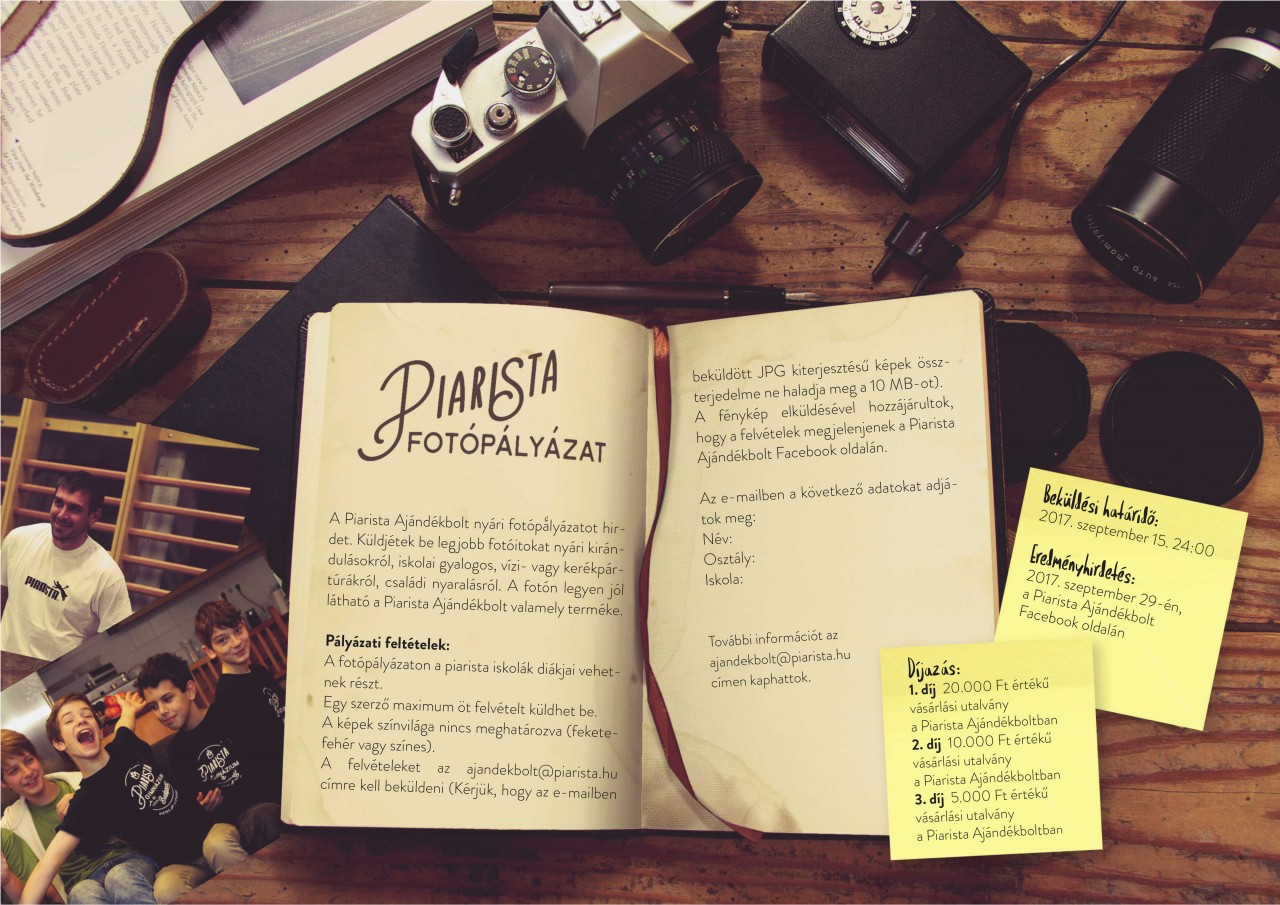 PIARISTA
FOTÓPÁLYÁZAT
A Piarista Ajándékbolt nyári fotópályázatot hir-
det. Küldjétek be legjobb fotóitokat nyári kirán-
dulásokról, iskolai gyalogos, vizi- vagy kerékpár-
túrákról, családi nyaralásról. A fotón legyen jól
látható a Piarista Ajándékbolt valamely terméke.
Pályázati feltételek:
A fotópályázaton a piarista iskolák diákjai vehet-
nek részt.
Egy szerző maximum öt felvételt küldhet be.
A képek színvilága nincs meghatározva (fekete-
fehér vagy színes).
A felvételeket az ajandekbolt@piarista.hu
címre kell beküldeni (Kérjük, hogy az e-mailben
beküldött JPG kiterjesztésű képek össz-
terjedelme ne haladja meg a 10 MB-ot).
A fénykép elküldésével hozzájárultok,
hogy a felvételek megjelenjenek a Piarista
Ajándékbolt Facebook oldalán.
Az e-mailben a következő adatokat adjá-
tok meg:
Név:
Osztály:
Iskola:
További információt az
ajandekbolt@piarista.hu
címen kaphattok.
Beküldési határidő:
2017. szeptember 15. 24:00
Eredményhirdetés:
2017. szeptember 29-én,
a Piarista Ajándékbolt
Facebook oldalán
Díjazás:
1. díj 20.000 Ft értékű
vásárlási utalvány
a Piarista Ajándékboltban
2. díj 10.000 Ft értékű
vásárlási utalvány
a Piarista Ajándékboltban
3. díj 5.000 Ft értékű
vásárlási utalvány
a Piarista Ajándékboltban
PIARISTA
PIARISTA
PIARISTA
AUTO